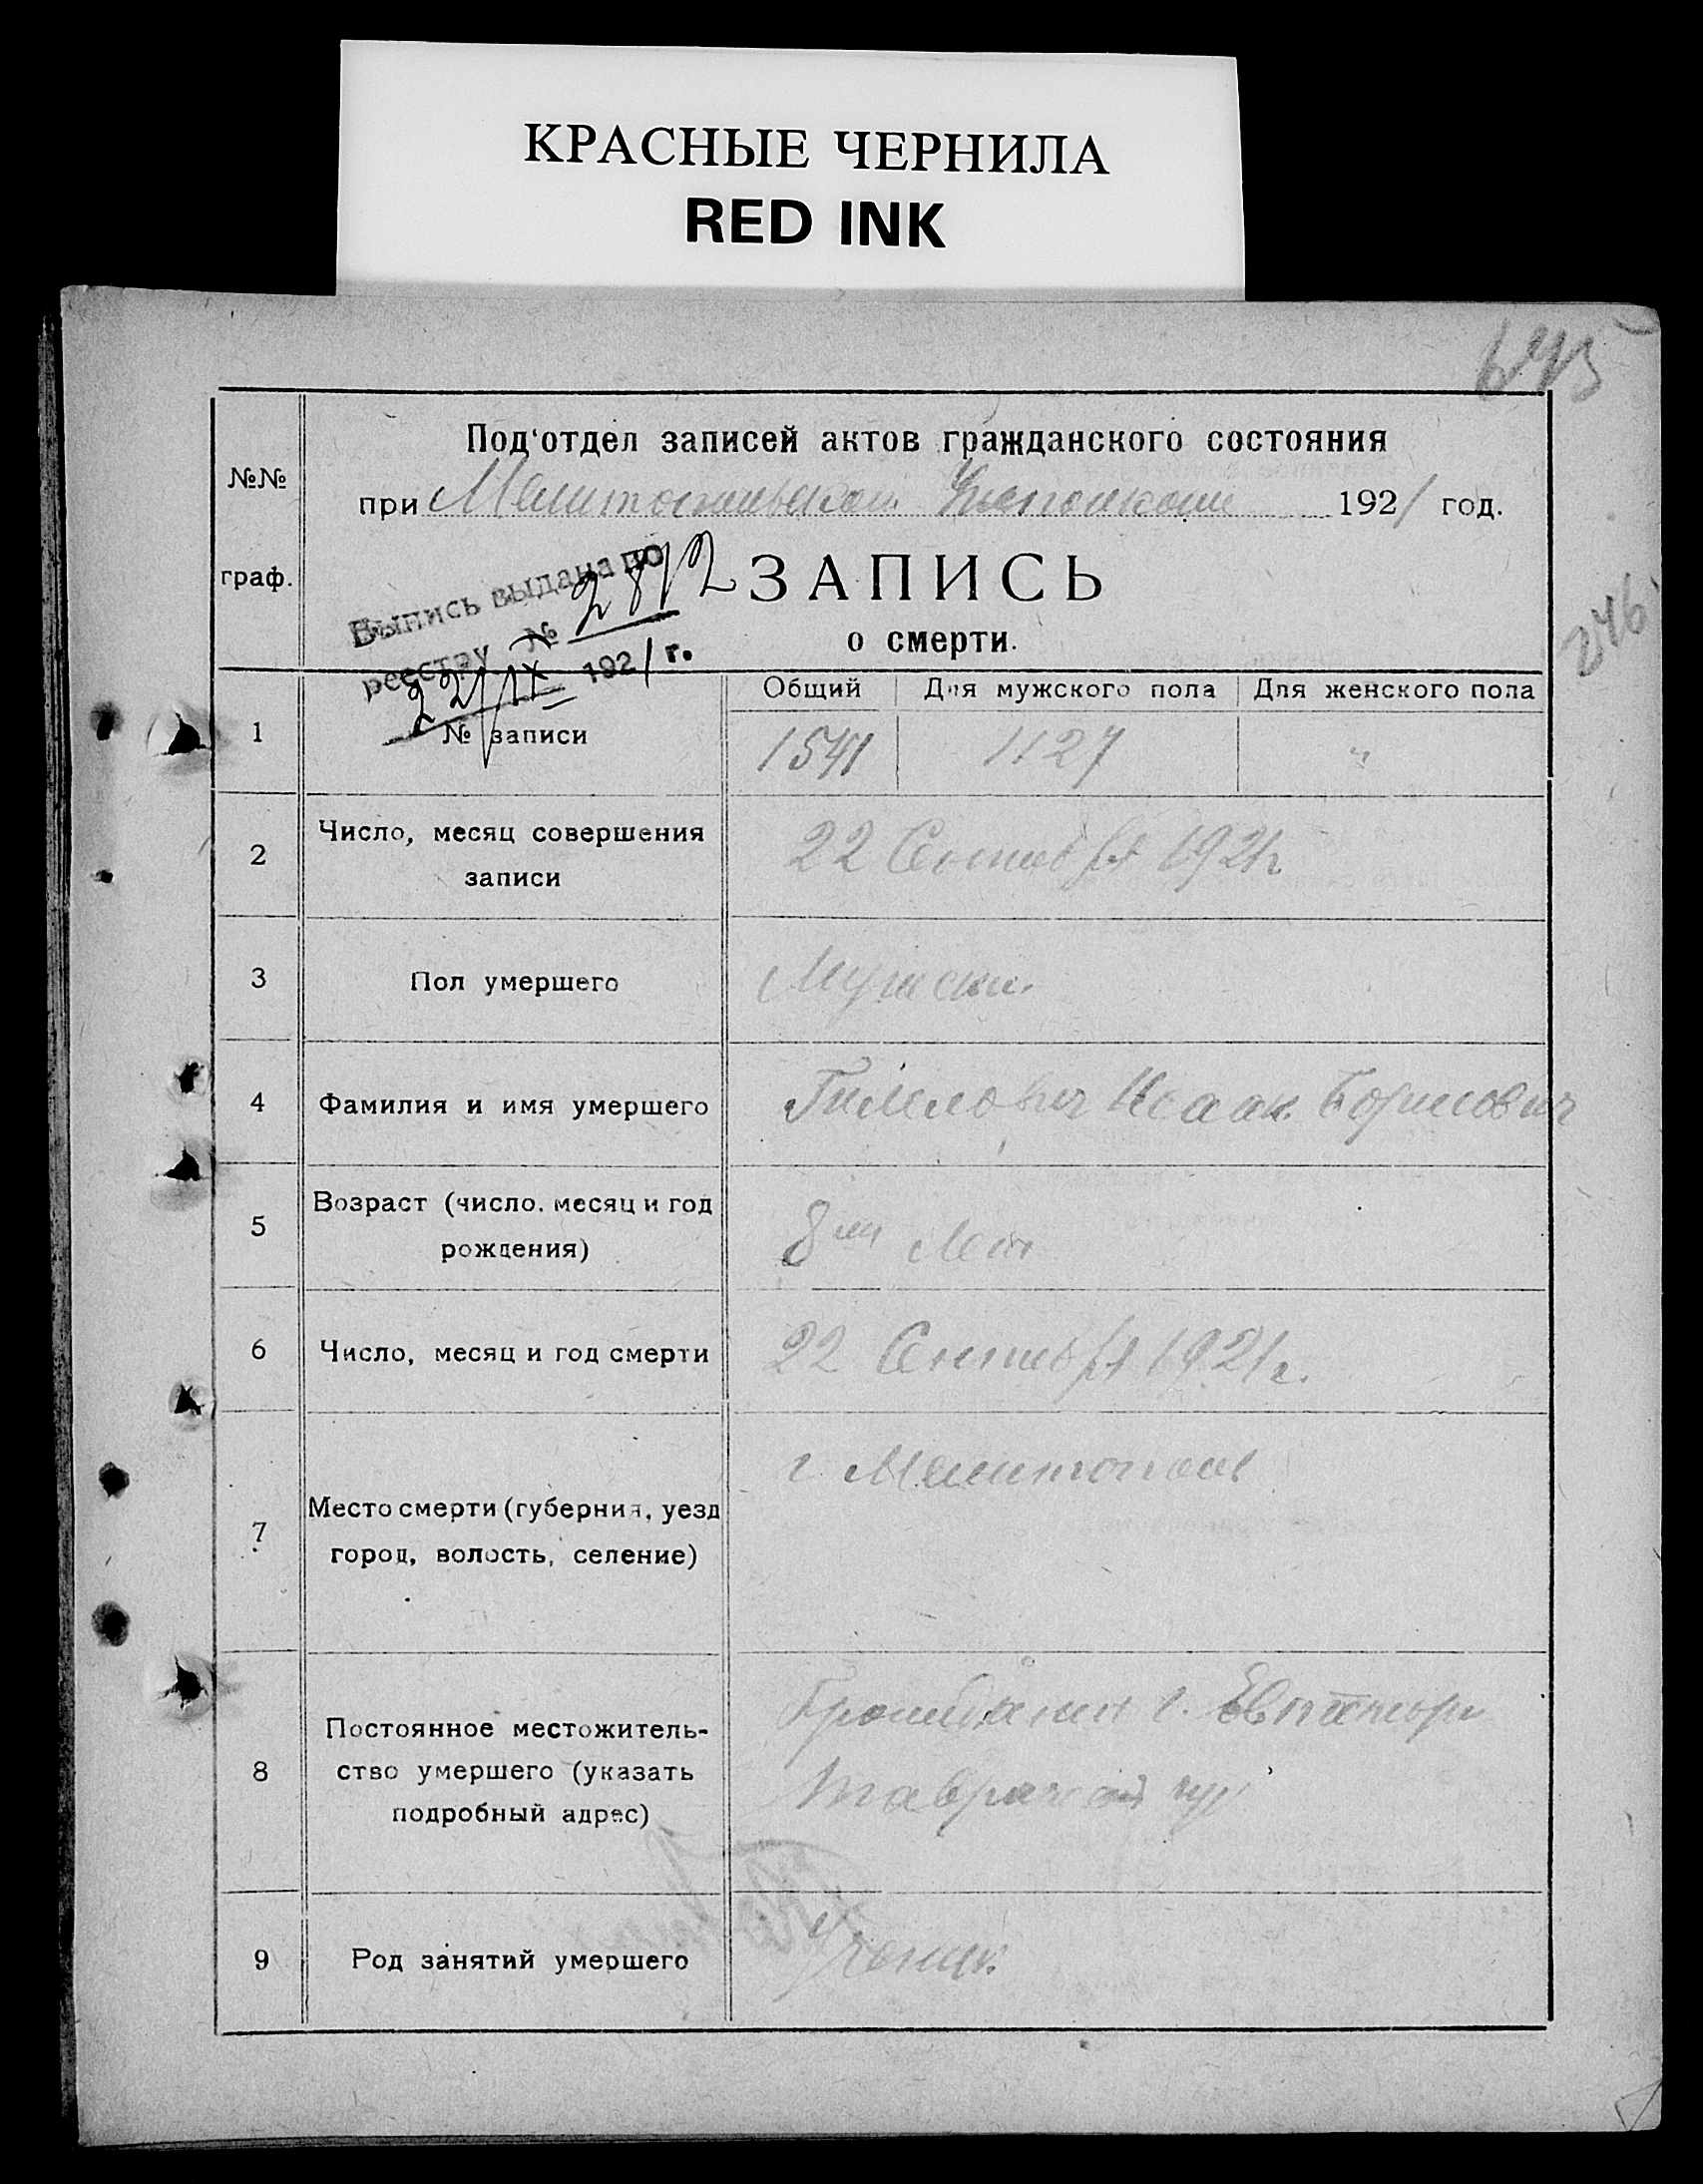 КРАСНЫЕ ЧЕРНИЛА
RED INK
Под‘отдел записей актов гражданского состояния
№№
при Мелитопольском 1921 год.
граф.
Выпись выдана по
реестру № 2812
22/IX 1921 г.
ЗАПИСЬ
о смерти.
Общий Для мужского пола Для женского пола
1 № записи 1541 1127 "
2 Число, месяц совершения
записи
22 Сентября 1921 г.
3 Пол умершего Мужской
4 Фамилия и имя умершего Исаак Борисович
5 Возраст (число, месяц и год
рождения)
8ми лет
6 Число, месяц и год смерти 22 Сентября 1921 г.
7 Место смерти (губерния, уезд
город, волость, селение)
г. Мелитополь
8 Постоянное местожитель-
ство умершего (указать
подробный адрес)
г. Евпатори
Таврической губ
9 Род занятий умершего
246